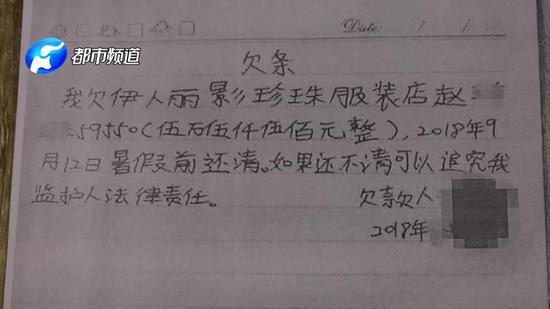 都市频道
Date:
欠条
我欠伊人丽影珍珠服装店赵
59550(伍万伍仟伍佰元整),2018年9
月12日暑假前还清。如果还不清可以追究我
监护人法律责任。
欠款人
2018年